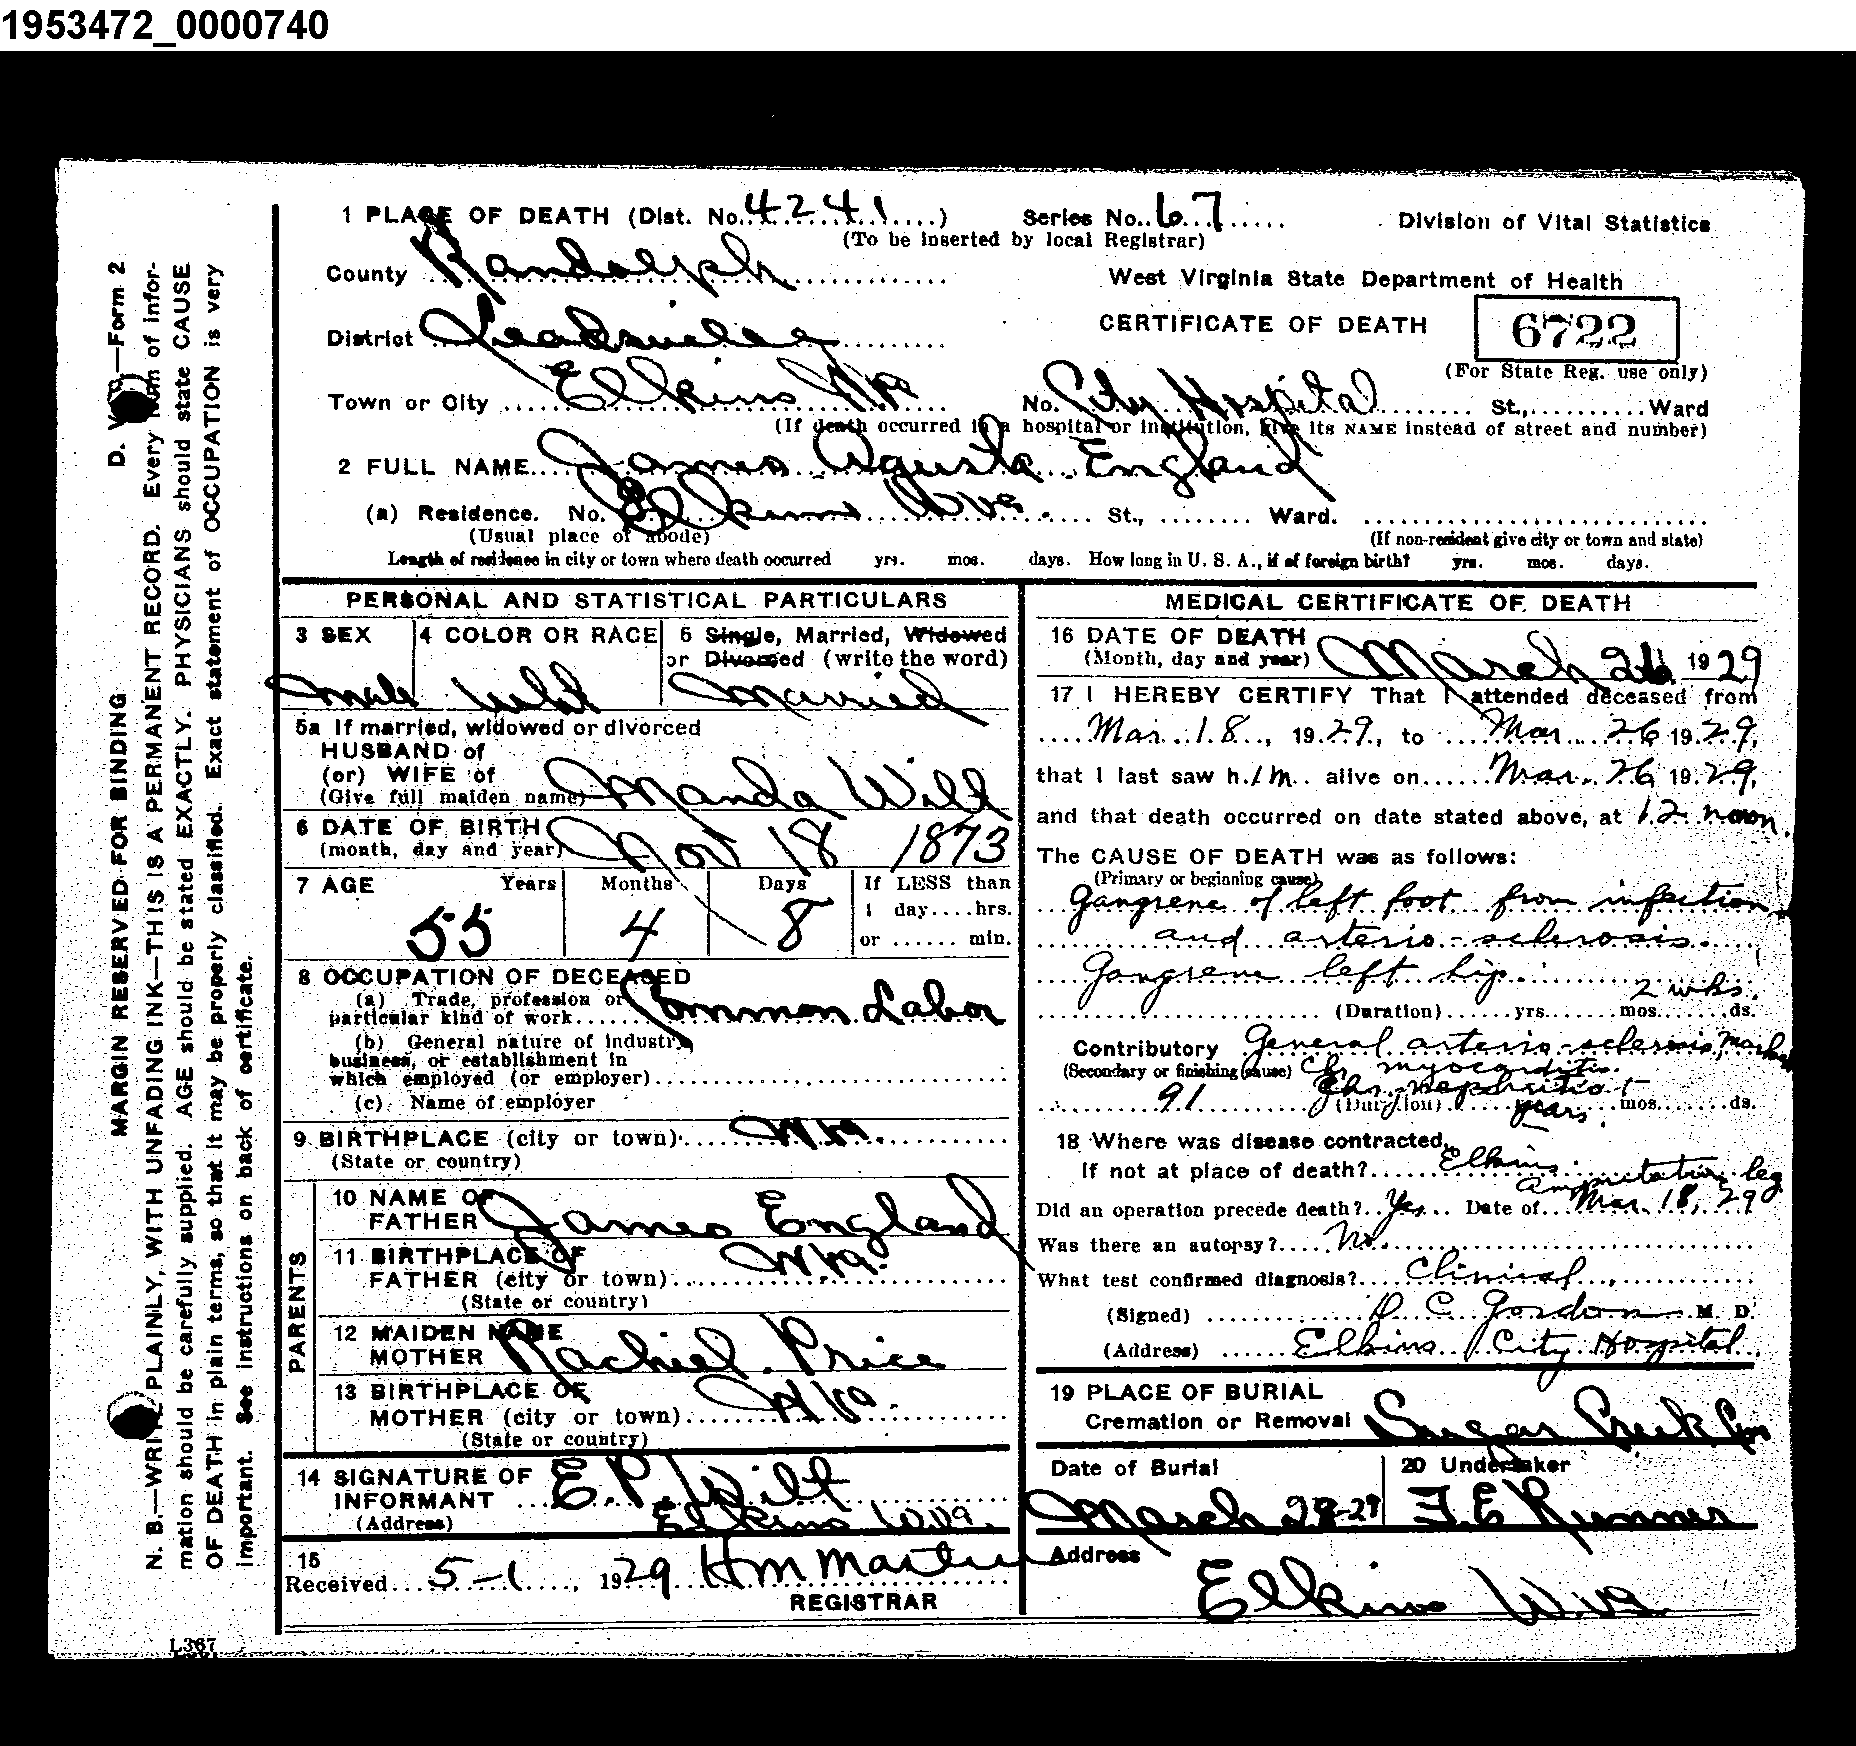 1953472_0000740
1 PLACE OF DEATH (Dist. No. 4241) Series No. 67 Division of Vital Statistics
(To be inserted by local Registrar)
County Randolph West Virginia State Department of Health
District Leadsville CERTIFICATE OF DEATH 6722
(For State Reg. use only)
Town or City Elkins W Va No. City Hospital St., Ward
(If death occurred in a hospital or institution, give its NAME instead of street and number)
2 FULL NAME James Agusta England
(a) Residence. No. Elkins W Va. St., Ward.
(Usual place of abode) (If non-resident give city or town and state)
Length of residence in city or town where death occurred yrs. mos. days. How long in U. S. A., if of foreign birth? yrs. mos. days.
PERSONAL AND STATISTICAL PARTICULARS
3 SEX 4 COLOR OR RACE 5 Single, Married, Widowed
or Divorced (write the word)
Male Wht Married
5a If married, widowed or divorced
HUSBAND of
(or) WIFE of
(Give full maiden name) Manda Will
6 DATE OF BIRTH
(month, day and year) Nov 18 1873
7 AGE Years Months Days If LESS than
1 day....hrs.
or ...... min.
55 4 8
8 OCCUPATION OF DECEASED
(a) Trade, profession or
particular kind of work Common Labor
(b) General nature of industry,
business, or establishment in
which employed (or employer)
(c) Name of employer
9 BIRTHPLACE (city or town) W Va.
(State or country)
PARENTS
10 NAME OF
FATHER James England
11 BIRTHPLACE OF
FATHER (city or town) W Va.
(State or country)
12 MAIDEN NAME
MOTHER Rachiel Price
13 BIRTHPLACE OF
MOTHER (city or town) W Va.
(State or country)
14 SIGNATURE OF
INFORMANT E. P. Wilt
(Address) Elkins W.Va.
15
Received 5-1, 1929 H M Martin
REGISTRAR
MEDICAL CERTIFICATE OF DEATH
16 DATE OF DEATH
(Month, day and year) March 26 1929
17 I HEREBY CERTIFY That I attended deceased from
Mar. 18, 1929, to Mar. 26 1929,
that I last saw h im alive on Mar. 26 1929,
and that death occurred on date stated above, at 12 noon.
The CAUSE OF DEATH was as follows:
(Primary or beginning cause)
Gangrene of left foot from infection
and arterio-sclerosis.
Gangrene left hip.
2 wks.
(Duration) yrs. mos. ds.
Contributory General arterio-sclerosis, marked
(Secondary or finishing cause) Chr myocarditis
91 Chr nephritis
(Duration) years. mos. ds.
18 Where was disease contracted,
if not at place of death? Elkins.
Amputation leg
Did an operation precede death? Yes Date of Mar. 18, 29
Was there an autopsy? No.
What test confirmed diagnosis? Clinical
(Signed) D. C. Gordon M D
(Address) Elkins City Hospital
19 PLACE OF BURIAL
Cremation or Removal Sugar Creek
Date of Burial 20 Undertaker
March 28-29 F. E Runner
Address
Elkins W.Va
D. V. S.—Form 2
MARGIN RESERVED FOR BINDING
N. B.—WRITE PLAINLY, WITH UNFADING INK—THIS IS A PERMANENT RECORD. Every item of infor-
mation should be carefully supplied. AGE should be stated EXACTLY. PHYSICIANS should state CAUSE
OF DEATH in plain terms, so that it may be properly classified. Exact statement of OCCUPATION is very
important. See instructions on back of certificate.
L367